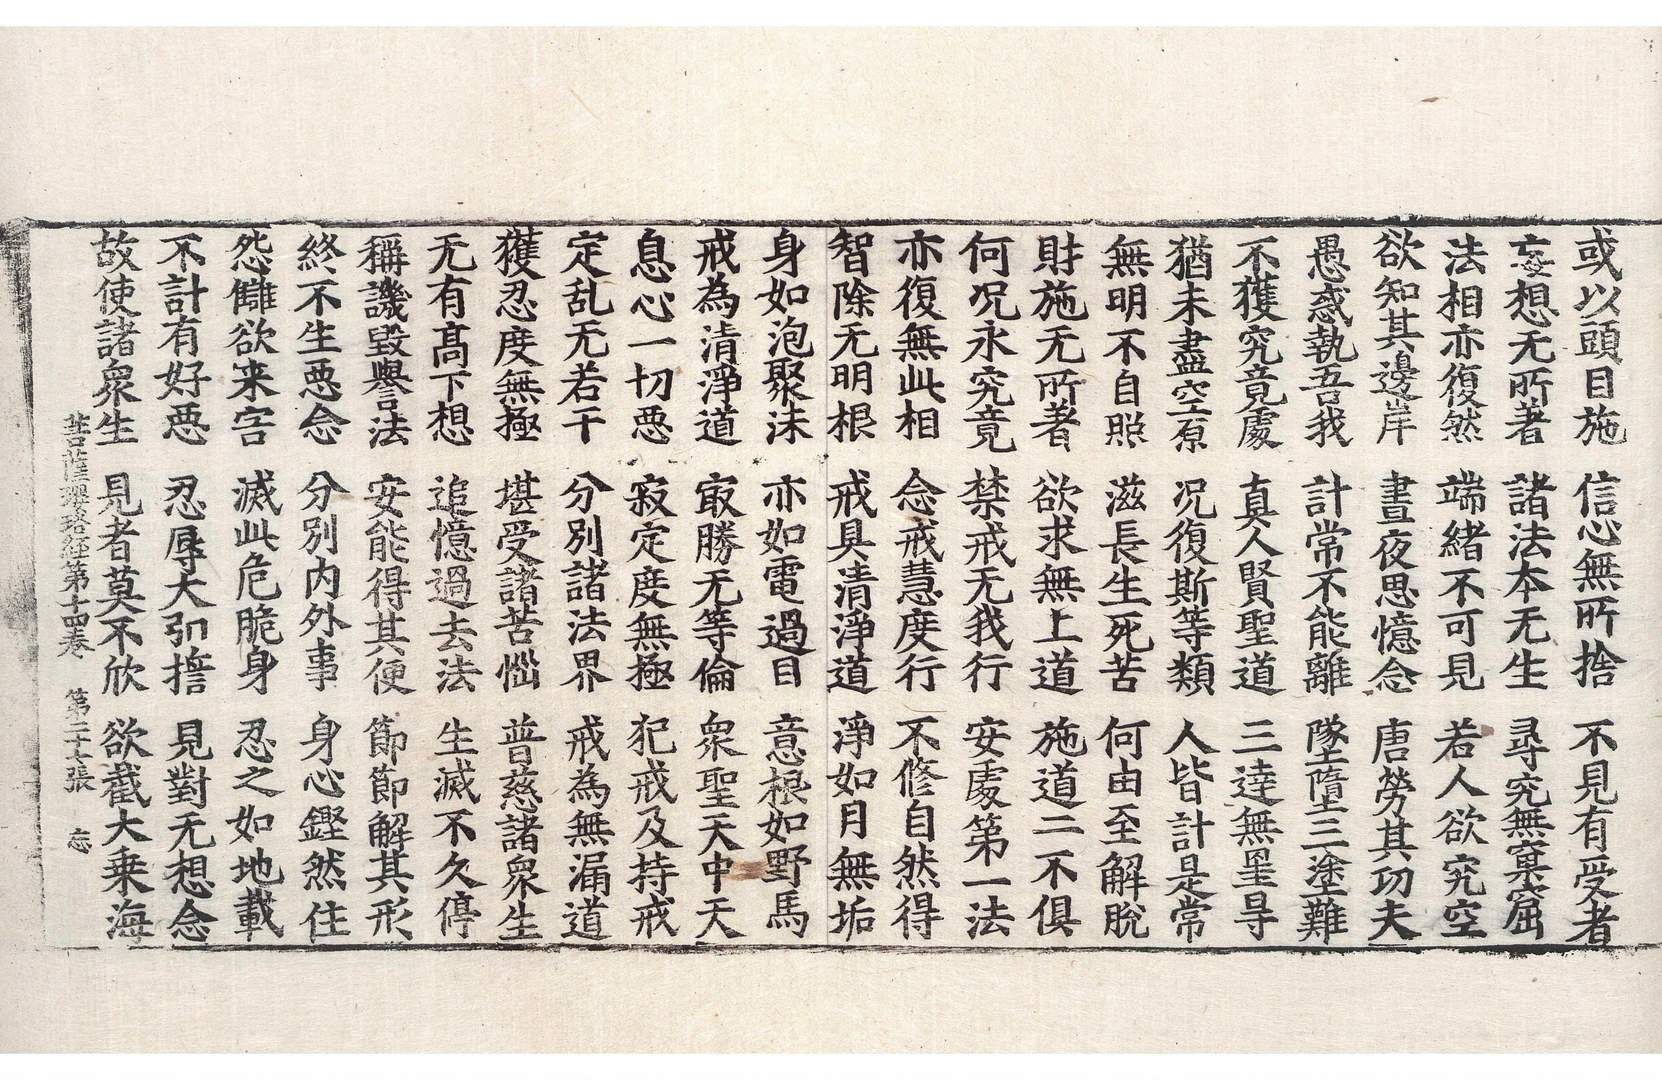 或以頭目施　信心無所捨　不見有受者
妄想无所著　諸法本无生　尋究無窠窟
法相亦復然　端緒不可見　若人欲究空
欲知其邊岸　晝夜思憶念　唐勞其功夫
愚惑執吾我　計常不能離　墜墮三塗難
不獲究竟處　真人賢聖道　三達無罣㝵
猶未盡空原　况復斯等類　人皆計是常
無明不自照　滋長生死苦　何由至解脫
財施无所著　欲求無上道　施道二不俱
何况永究竟　禁戒无我行　安處第一法
亦復無此相　念戒慧度行　不修自然得
智除无明根　戒具清淨道　淨如月無垢
身如泡聚沫　亦如電過目　意根如野馬
戒為清淨道　冣勝无等倫　眾聖天中天
息心一切惡　寂定度無極　犯戒及持戒
定乱无若干　分別諸法界　戒為無漏道
獲忍度無極　堪受諸苦惱　普慈諸眾生
无有髙下想　追憶過去法　生滅不久停
稱譏毀譽法　安能得其便　節節解其形
終不生惡念　分別內外事　身心鏗然住
怨讎欲来害　滅此危脆身　忍之如地載
不計有好惡　忍辱大弘誓　見對无想念
故使諸眾生　見者莫不欣　欲截大乗海
菩薩瓔珞經第十四卷　第二十張　忘